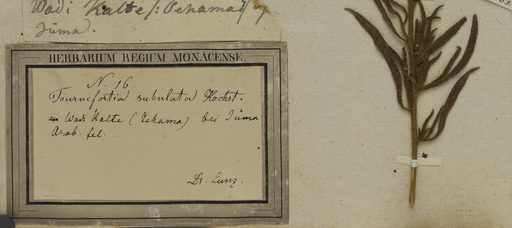 Wadi Kalte (: Eekama)
Júma.
HERBARIUM REGIUM MONACENSE.
N. 16.
Tournefortia subulata Hochst.
Wadi Kalte (Eekama) bei Júma
Arab. fel.
Dr. Lunz.